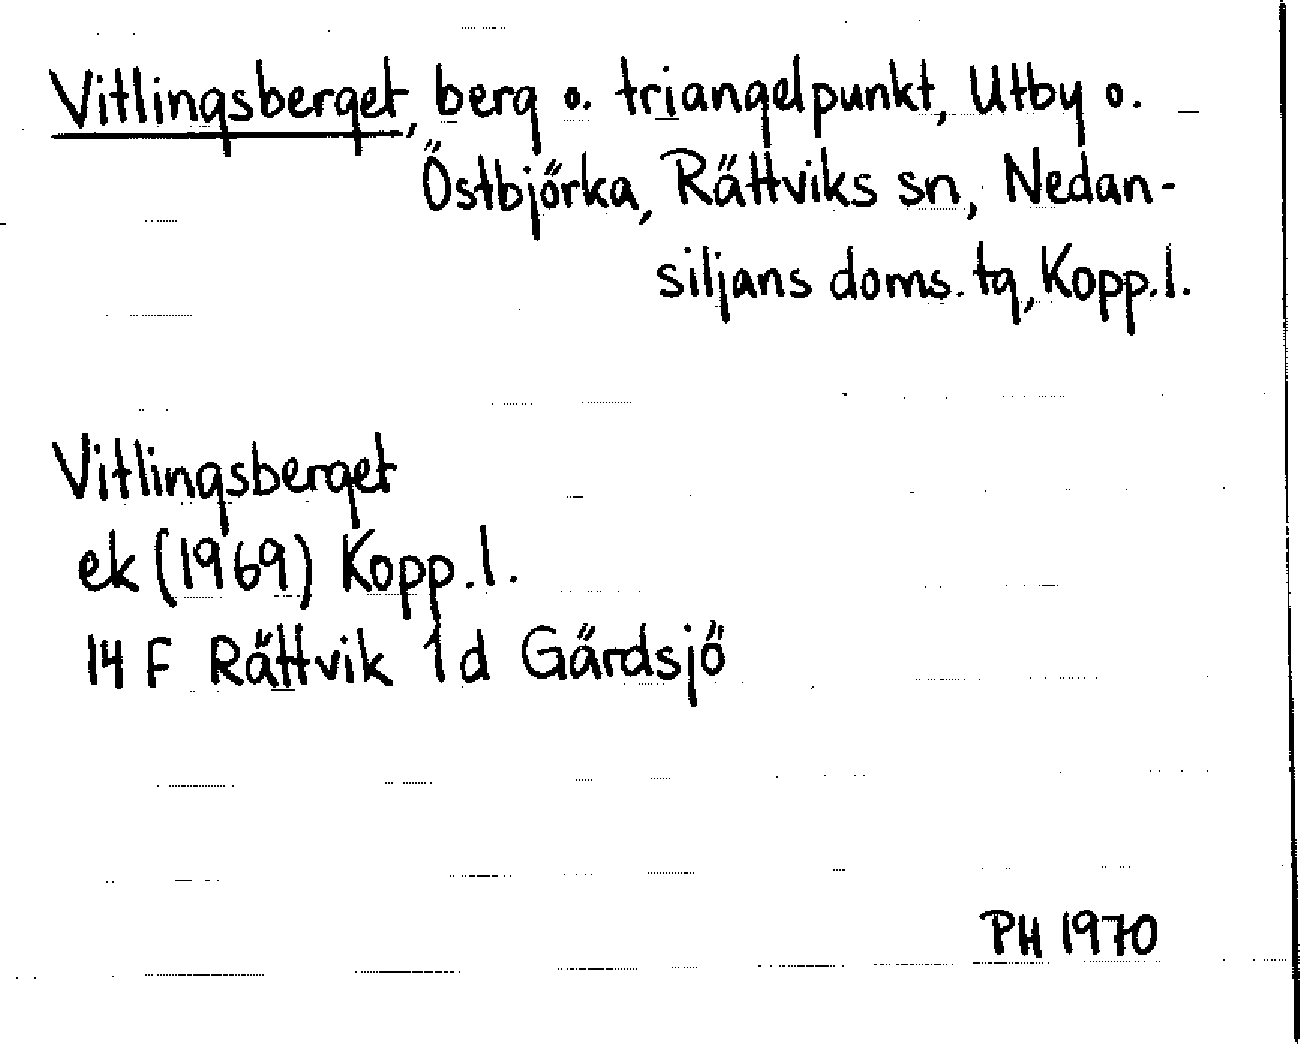 Vitlingsberget, berg o. triangelpunkt, Utby o.
Östbjörka, Rättviks sn, Nedan-
siljans doms. tg, Kopp. l.
Vitlingsberget
ek (1969) Kopp. l.
14 F Rättvik 1 d Gärdsjö
PH 1970